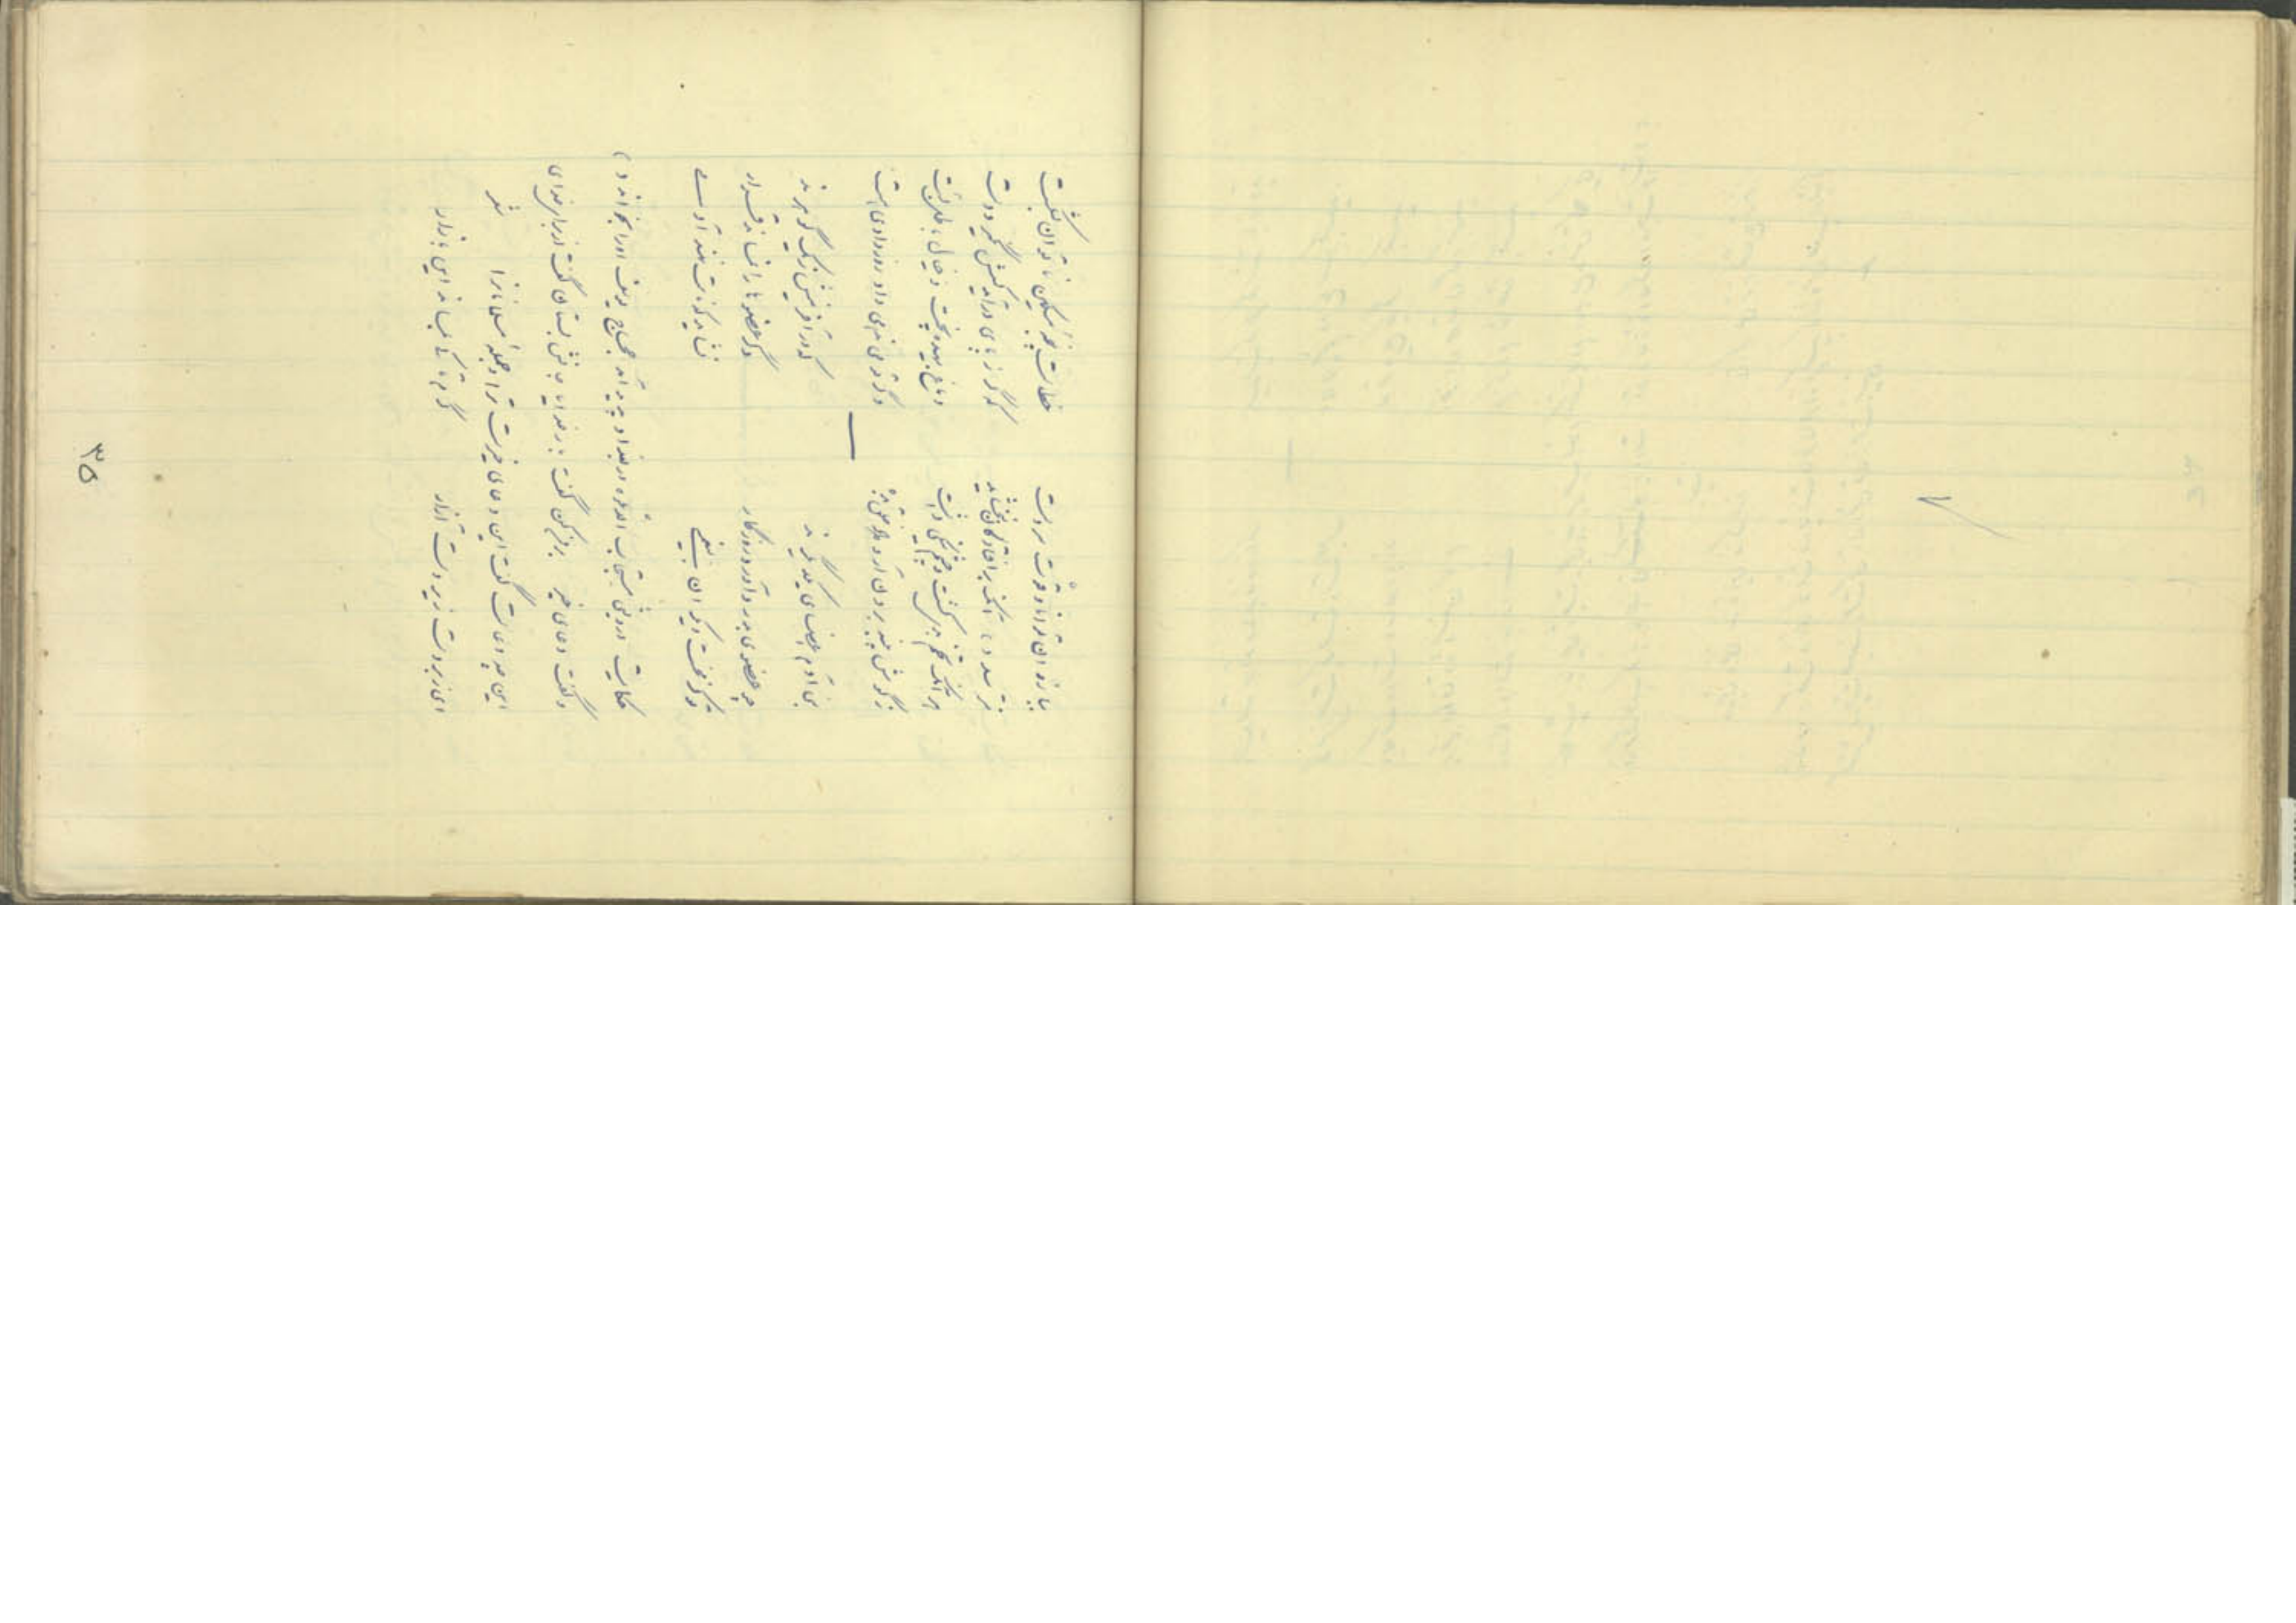 ببازوان توانا و قوّت سر دست خطاست پنجهٔ مسکین ناتوان بشکست
نترسد آنکه بر افتادگان نبخشاید که گر ز پای درآید کسش نگیرد دست
هر آنکه تخم بدی کشت و چشم نیکی داشت دماغ بیهده پخت و خیال باطل بست
ز گوش پنبه برون آر و داد خلق بده و گر تو می ندهی داد روز دادی هست
بنی آدم اعضای یکدیگرند که در آفرینش ز یک گوهرند
چو عضوی بدرد آورد روزگار دگر عضوها را نماند قرار
تو کز محنت دیگران بیغمی نشاید که نامت نهند آدمی
حکایت درویشی مستجاب الدعوه در بغداد پدید آمد حجاج یوسف او را بخواند و
گفت دعای خیر بر من کن گفت خدایا جانش بستان گفت از بهر خدای
این چه دعاست گفت این دعای خیرست ترا و جمله مسلمانان را شعر
ای زبردست زیر دست آزار گرم تا کی بماند این بازار
۳۵